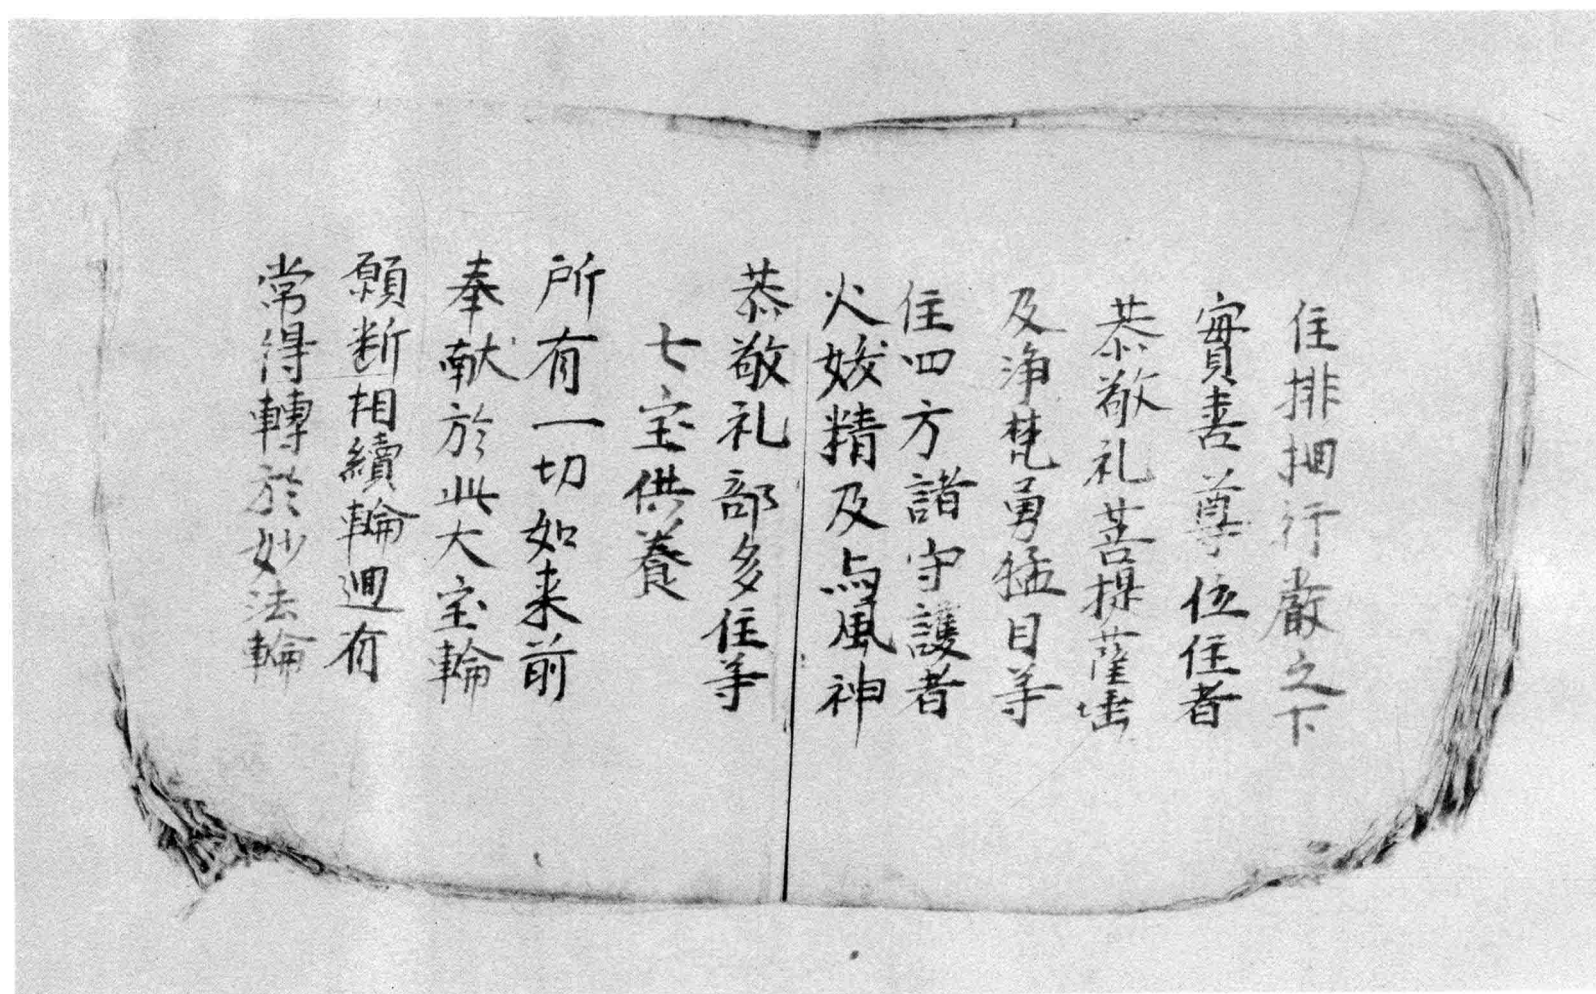 住排捆行嚴之下
實善尊位住者
恭敬礼菩提薩埵
及浄梵勇猛目等
住四方諸守護者
火妭精及与風神
恭敬礼部多住等
七宝供養
所有一切如来前
奉献於此大宝輪
願断相續輪迴有
常得轉於妙法輪